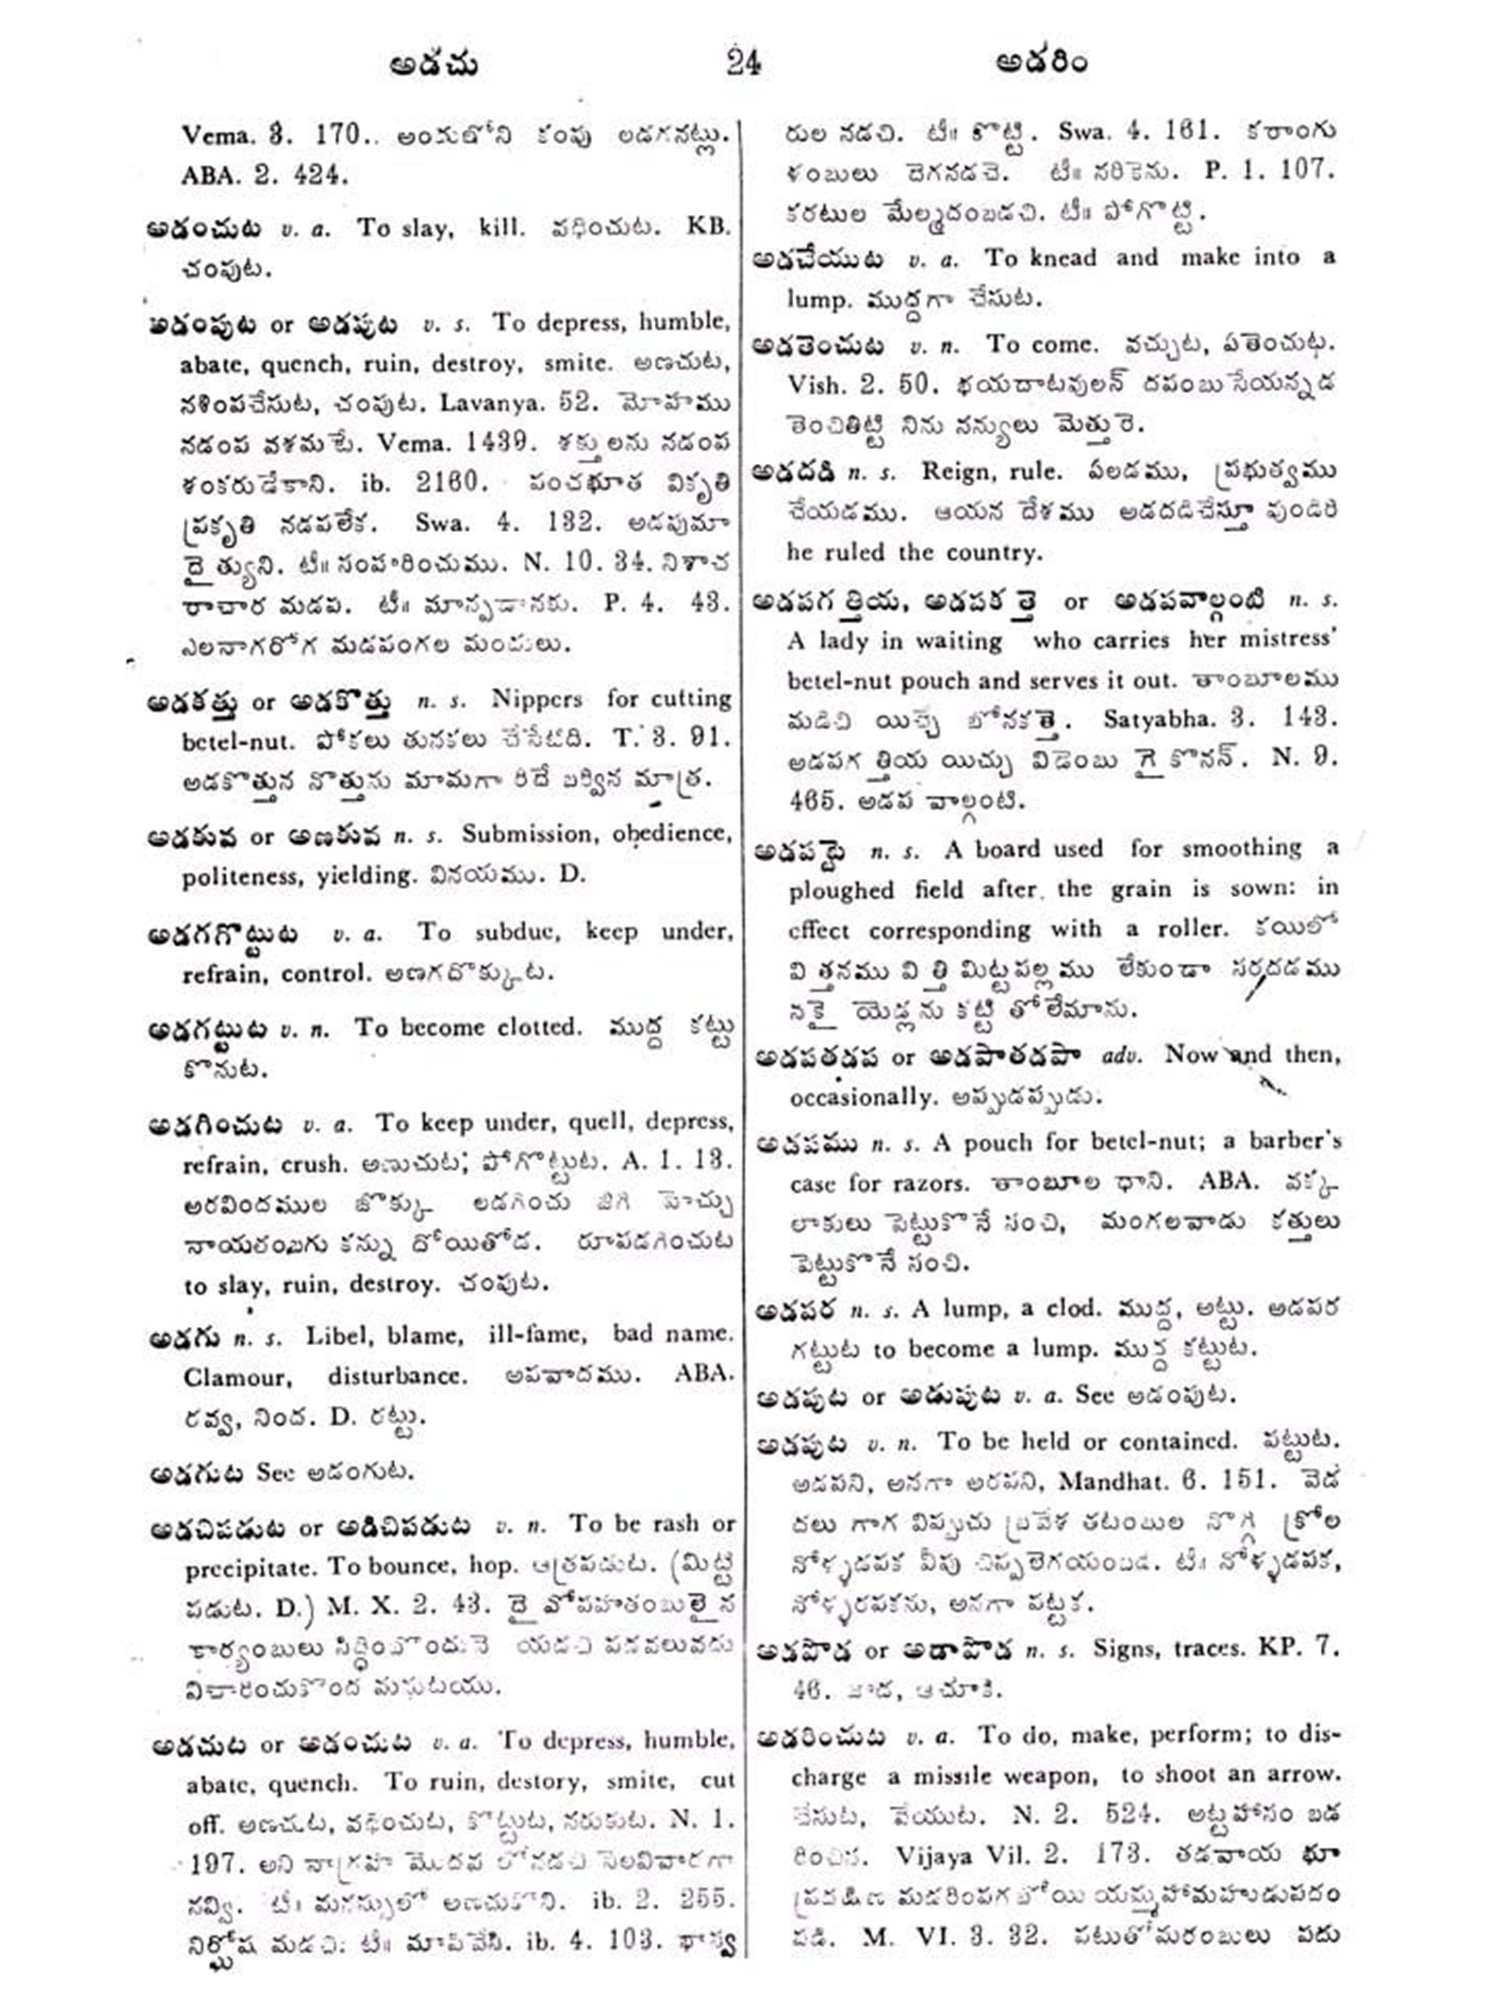 అడచు 24 అడరిం
Vema. 3. 170.. అందులోని కంపు లడగనట్లు.
ABA. 2. 424.
అడంచుట v. a. To slay, kill. వధించుట. KB.
చంపుట.
అడంపుట or అడపుట v. s. To depress, humble,
abate, quench, ruin, destroy, smite. అణచుట,
నశింపచేసుట, చంపుట. Lavanya. 52. మోహము
నడంప వశమటే. Vema. 1439. శక్తులను నడంప
శంకరుడేకాని. ib. 2160. పంచభూత వికృతి
ప్రకృతి నడపలేక. Swa. 4. 132. అడపుమా
దైత్యుని. టీ॥ సంహరించుము. N. 10. 34. నిశాచ
రాచార మడప. టీ॥ మాన్పడానకు. P. 4. 43.
ఎలనాగరోగ మడపంగల మందులు.
అడకత్తు or అడకొత్తు n. s. Nippers for cutting
betel-nut. పోకలు తునకలు చేసేటిది. T. 3. 91.
అడకొత్తున నొత్తును మామగా రిదే బర్విన మాత్ర.
అడకువ or అణకువ n. s. Submission, obedience,
politeness, yielding. వినయము. D.
అడగగొట్టుట v. a. To subdue, keep under,
refrain, control. అణగదొక్కుట.
అడగట్టుట v. n. To become clotted. ముద్ద కట్టు
కొనుట.
అడగించుట v. a. To keep under, quell, depress,
refrain, crush. అణుచుట; పోగొట్టుట. A. 1. 13.
అరవిందముల జొక్కు లడగించు జిగి హెచ్చు
నాయరంబగు కన్ను దోయితోడ. రూపడగించుట
to slay, ruin, destroy. చంపుట.
అడగు n. s. Libel, blame, ill-fame, bad name.
Clamour, disturbance. అపవాదము. ABA.
రవ్వ, నింద. D. రట్టు.
అడగుట See అడంగుట.
అడచిపడుట or అడిచిపడుట v. n. To be rash or
precipitate. To bounce, hop. ఆత్రపడుట. (మిట్టి
పడుట. D.) M. X. 2. 43. దైవోపహతంబులైన
కార్యంబులు సిద్ధింపొందునె యడచి పడవలువదు
విచారించుకొంద మనుటయు.
అడచుట or అడంచుట v. a. To depress, humble,
abate, quench. To ruin, destory, smite, cut
off. అణచుట, వధించుట, కొట్టుట, నరుకుట. N. 1.
197. అని నాగ్రహ మొదవ లోనడచి సెలవివారగా
నవ్వి. టీ॥ మనస్సులో అణచుకొని. ib. 2. 255.
నిర్ఘోష మడచి: టీ॥ మాపివేసి. ib. 4. 103. భాస్వ
రుల నడచి. టీ॥ కొట్టి. Swa. 4. 161. కరాంగు
ళంబులు దెగనడచె. టీ॥ నరికెను. P. 1. 107.
కరటుల మేల్మదంబడచి. టీ॥ పోగొట్టి.
అడచేయుట v. a. To knead and make into a
lump. ముద్దగా చేసుట.
అడతెంచుట v. n. To come. వచ్చుట, ఏతెంచుట.
Vish. 2. 50. భయదాటవులన్ దపంబు సేయన్నడ
తెంచితిట్టి నిను నన్యులు మెత్తురె.
అడదడి n. s. Reign, rule. ఏలడము, ప్రభుత్వము
చేయడము. ఆయన దేశము అడదడిచేస్తూ వుండిరి
he ruled the country.
అడపగత్తియ, అడపకత్తె or అడపవాల్గంటి n. s.
A lady in waiting who carries her mistress'
betel-nut pouch and serves it out. తాంబూలము
మడిచి యిచ్చే బోనకత్తె. Satyabha. 3. 143.
అడపగత్తియ యిచ్చు విడెంబు గైకొనన్. N. 9.
465. అడప వాల్గంటి.
అడపట్టె n. s. A board used for smoothing a
ploughed field after the grain is sown: in
effect corresponding with a roller. కయిలో
విత్తనము విత్తి మిట్టపల్లము లేకుండా సర్దడము
నకై యెడ్లను కట్టి తోలేమాను.
అడపతడప or అడపాతడపా adv. Now and then,
occasionally. అప్పుడప్పుడు.
అడపము n. s. A pouch for betel-nut; a barber's
case for razors. తాంబూల ధాని. ABA. వక్క
లాకులు పెట్టుకొనే సంచి, మంగలవాడు కత్తులు
పెట్టుకొనే సంచి.
అడపర n. s. A lump, a clod. ముద్ద, అట్టు. అడపర
గట్టుట to become a lump. ముద్ద కట్టుట.
అడపుట or అడుపుట v. a. See అడంపుట.
అడపుట v. n. To be held or contained. పట్టుట.
అడపని, అనగా అరపని, Mandhat. 6. 151. వెడ
దలు గాగ విప్పుచు బ్రవేళ తటంబుల నొగ్గి క్రోల
నోళ్ళడపక వీపు చిప్పలెగయంబడి. టీ॥ నోళ్ళడపక,
నోళ్ళరపకను, అనగా పట్టక.
అడపొడ or అడాపొడ n. s. Signs, traces. KP. 7.
46. జాడ, ఆచూకి.
అడరించుట v. a. To do, make, perform; to dis-
charge a missile weapon, to shoot an arrow.
చేసుట, వేయుట. N. 2. 524. అట్టహాసం బడ
రించిన. Vijaya Vil. 2. 173. తడవాయ భూ
ప్రదక్షిణ మడరింపగ బోయి యమ్మహామహుడుపదం
పడి. M. VI. 3. 32. పటుతోమరంబులు పదు